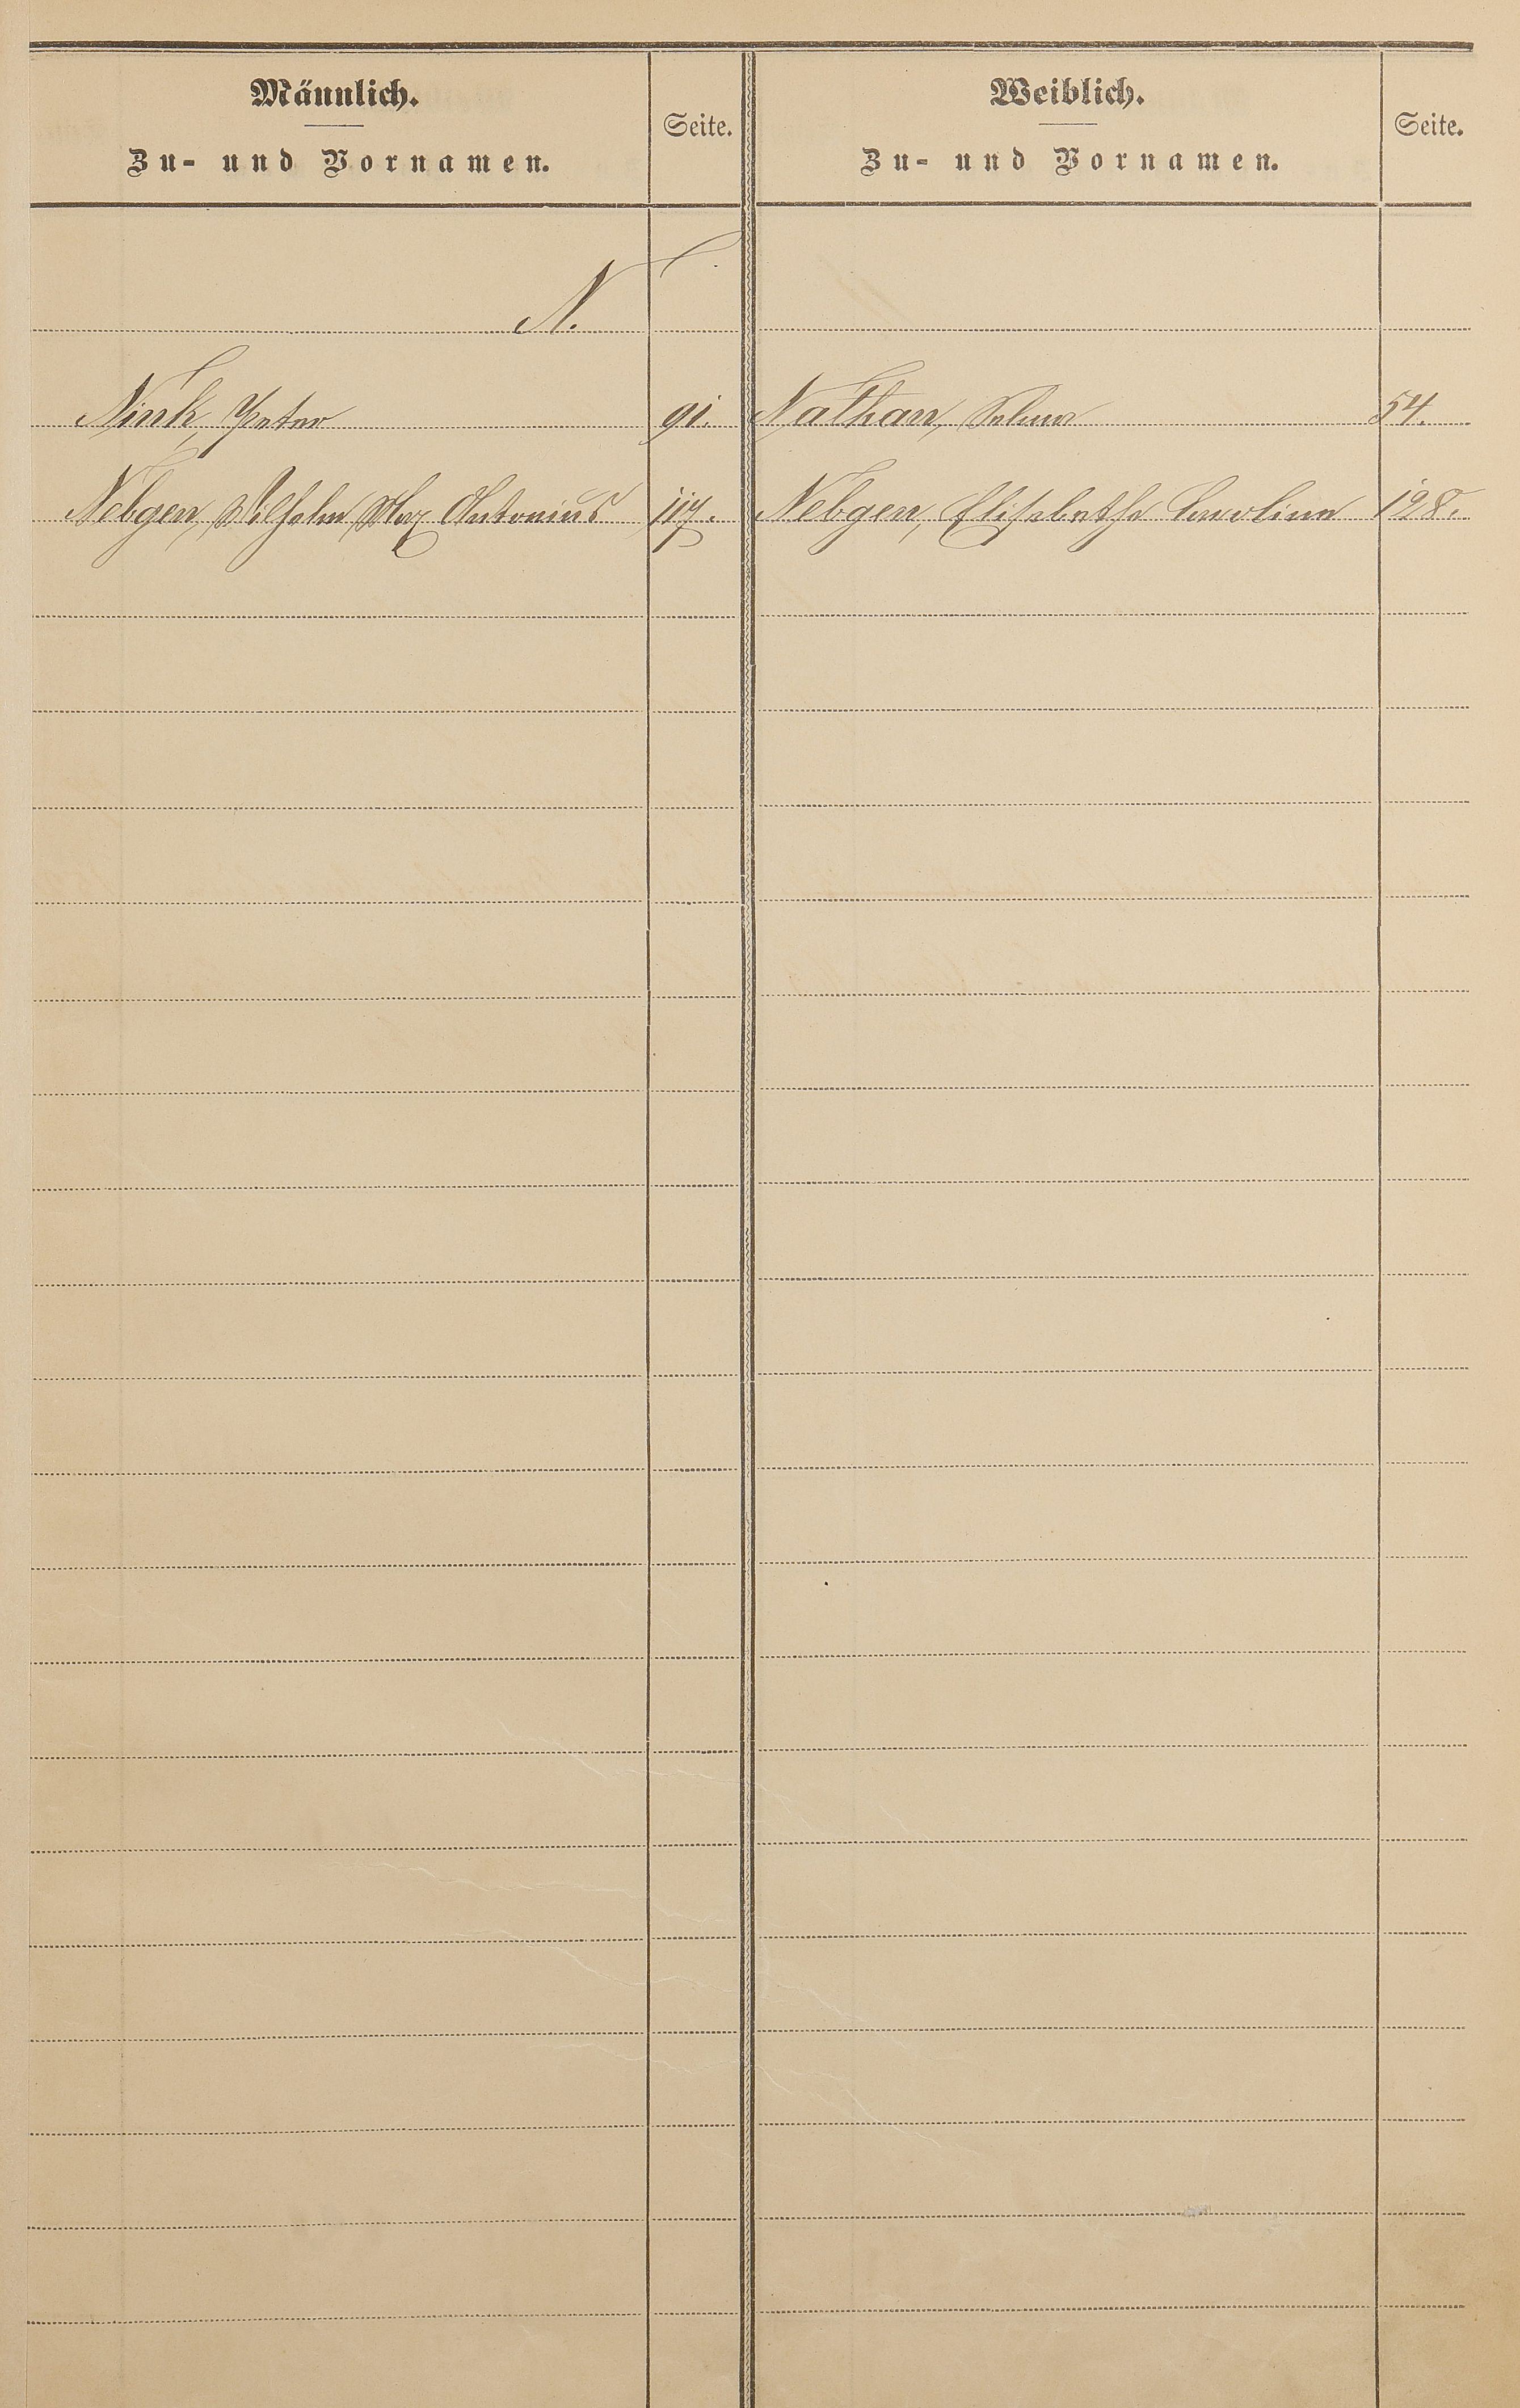 Männlich.
Zu- und Vornamen.
Seite.
Weiblich.
Zu- und Vornamen.
Seite.
N.
Nink, Peter 91. Nathan, Selma 54.
Nebgen, Wilhelm Max Antonius 117. Nebgen, Elisabetha Carolina 128.